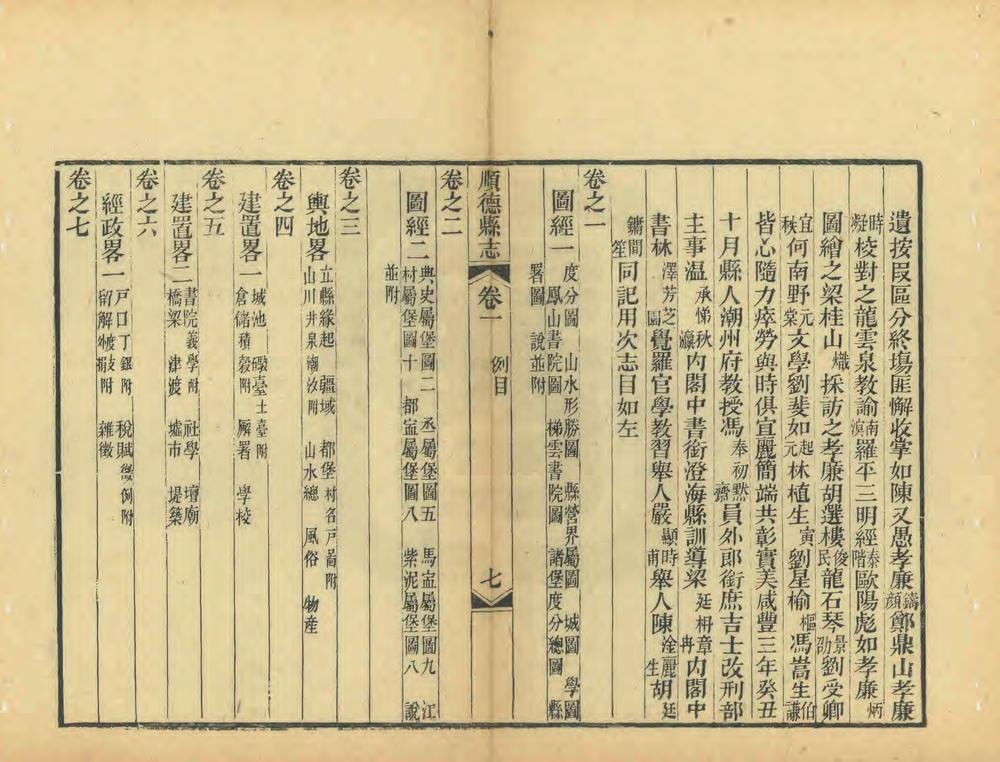 遺按段區分終塲匪懈收掌如陳又愚孝廉鑄顏鄭鼎山孝廉
時凝校對之龍雲泉教諭南溟羅平三明經泰階歐陽彪如孝廉炳
圖繪之梁桂山熾採訪之孝廉胡選樓俊民龍石琴景劭劉受卿
宜秩何南野元棠文學劉斐如元起林植生寅劉星榆樞馮嵩生伯謙
皆心隨力瘁勞與時俱宜麗簡端共彰實美咸豐三年癸丑
十月縣人潮州府教授馮奉初默齋員外郎銜庶吉士改刑部
主事温承悌秋瀛內閣中書銜澄海縣訓導梁廷枏章冉內閣中
書林澤芳芝園覺羅官學教習舉人嚴顯時甫舉人陳淦麗生胡廷
鏞間笙同記用次志目如左
卷之一
圖經一度分圖 山水形勝圖 縣營界屬圖 城圖 學圖 縣
署圖 鳳山書院圖 梯雲書院圖 諸堡度分總圖
說並附
順德縣志 卷一 例目 七
卷之二
圖經二典史屬堡圖二 丞屬堡圖五 馬寍屬堡圖九 江
村屬堡圖十 都寍屬堡圖八 紫泥屬堡圖八 說
並附
卷之三
輿地畧立縣緣起 疆域 都堡村名戶啚附
山川井泉潮汐附 山水總 風俗 物産
卷之四
建置畧一城池 礮臺土臺附
倉儲積穀附 廨署 學校
卷之五
建置畧二書院義學附 社學 壇廟
橋梁 津渡 墟市 堤築
卷之六
經政畧一戶口丁鹽附 稅賦徵例附
留解附 雜徵
卷之七